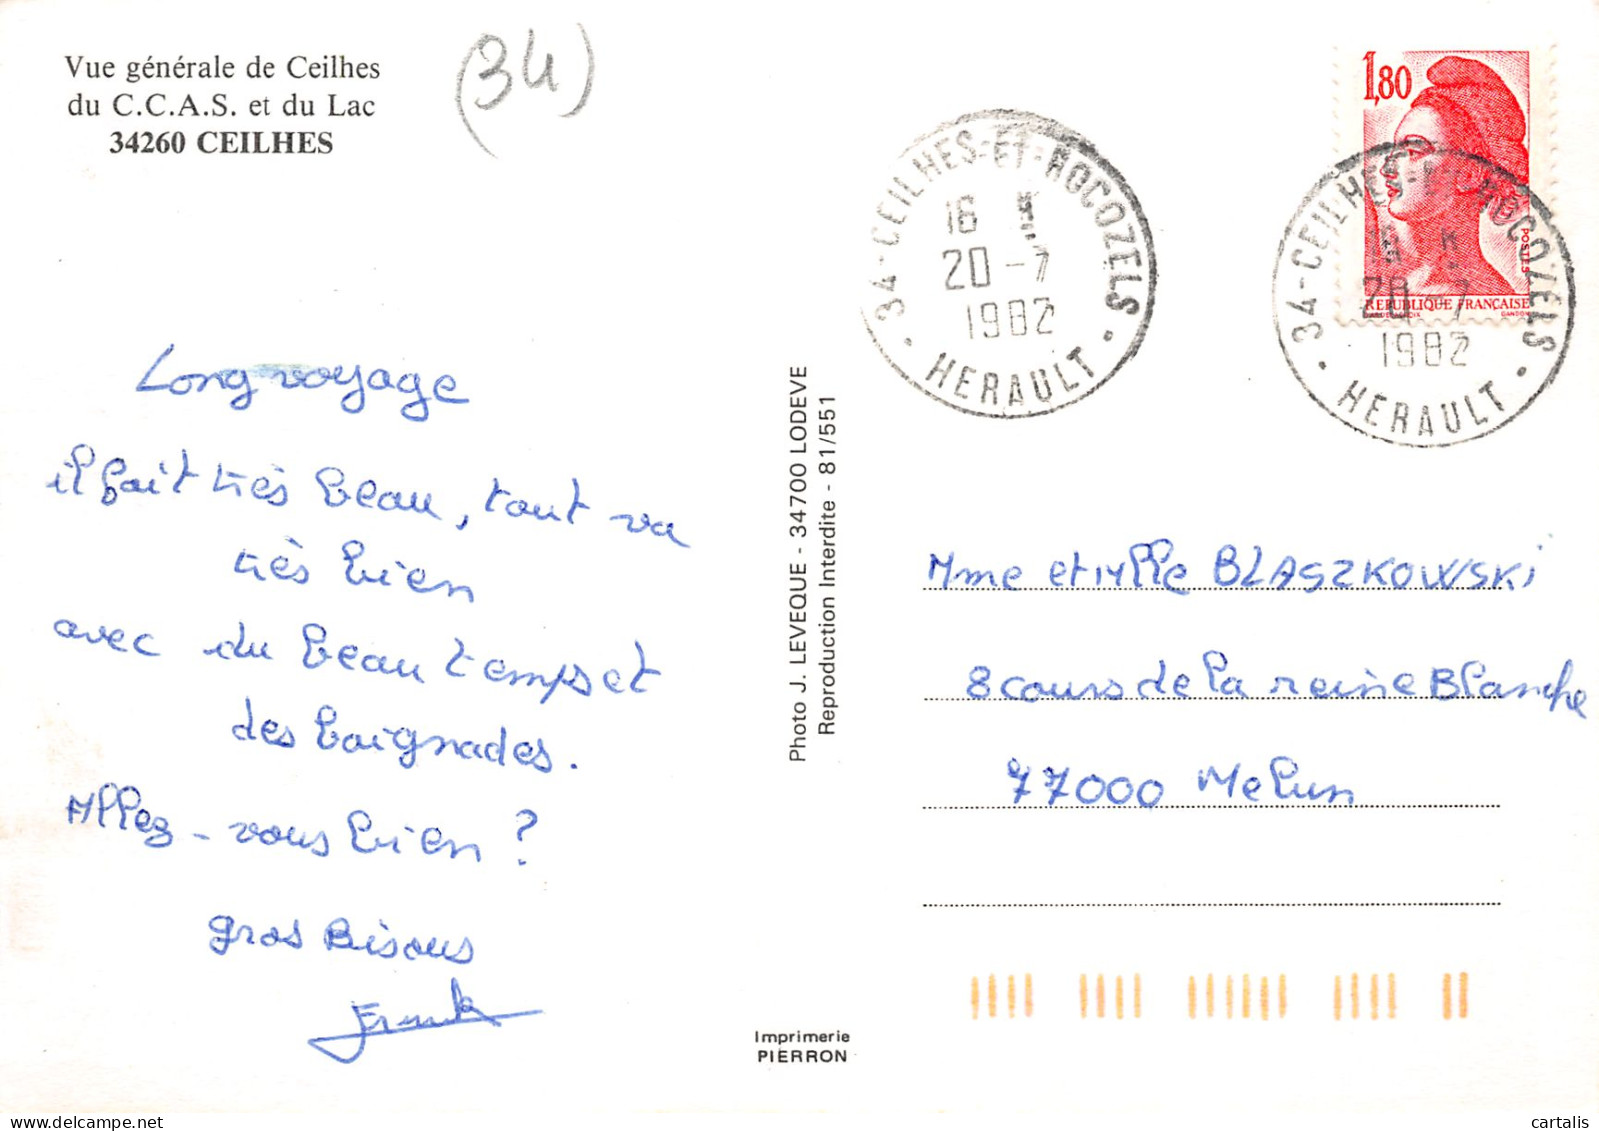 Vue générale de Ceilhes
du C.C.A.S. et du Lac
34260 CEILHES
(34)
Long voyage
il fait très beau, tout va
très bien
avec du beau temps et
des baignades.
Allez-vous bien ?
gros Bisous
Franck
Photo J. LEVEQUE - 34700 LODEVE
Reproduction Interdite - 81/551
Imprimerie
PIERRON
34-CEILHES-ET-ROCOZELS
16 H
20-7
1982
HERAULT
1,80
POSTES
REPUBLIQUE FRANÇAISE
GANDON
34-CEILHES-ET-ROCOZELS
16 H
20-7
1982
HERAULT
Mme et Mlle BLASZKOWSKI
8 cours de la reine Blanche
77000 Melun
cartalis